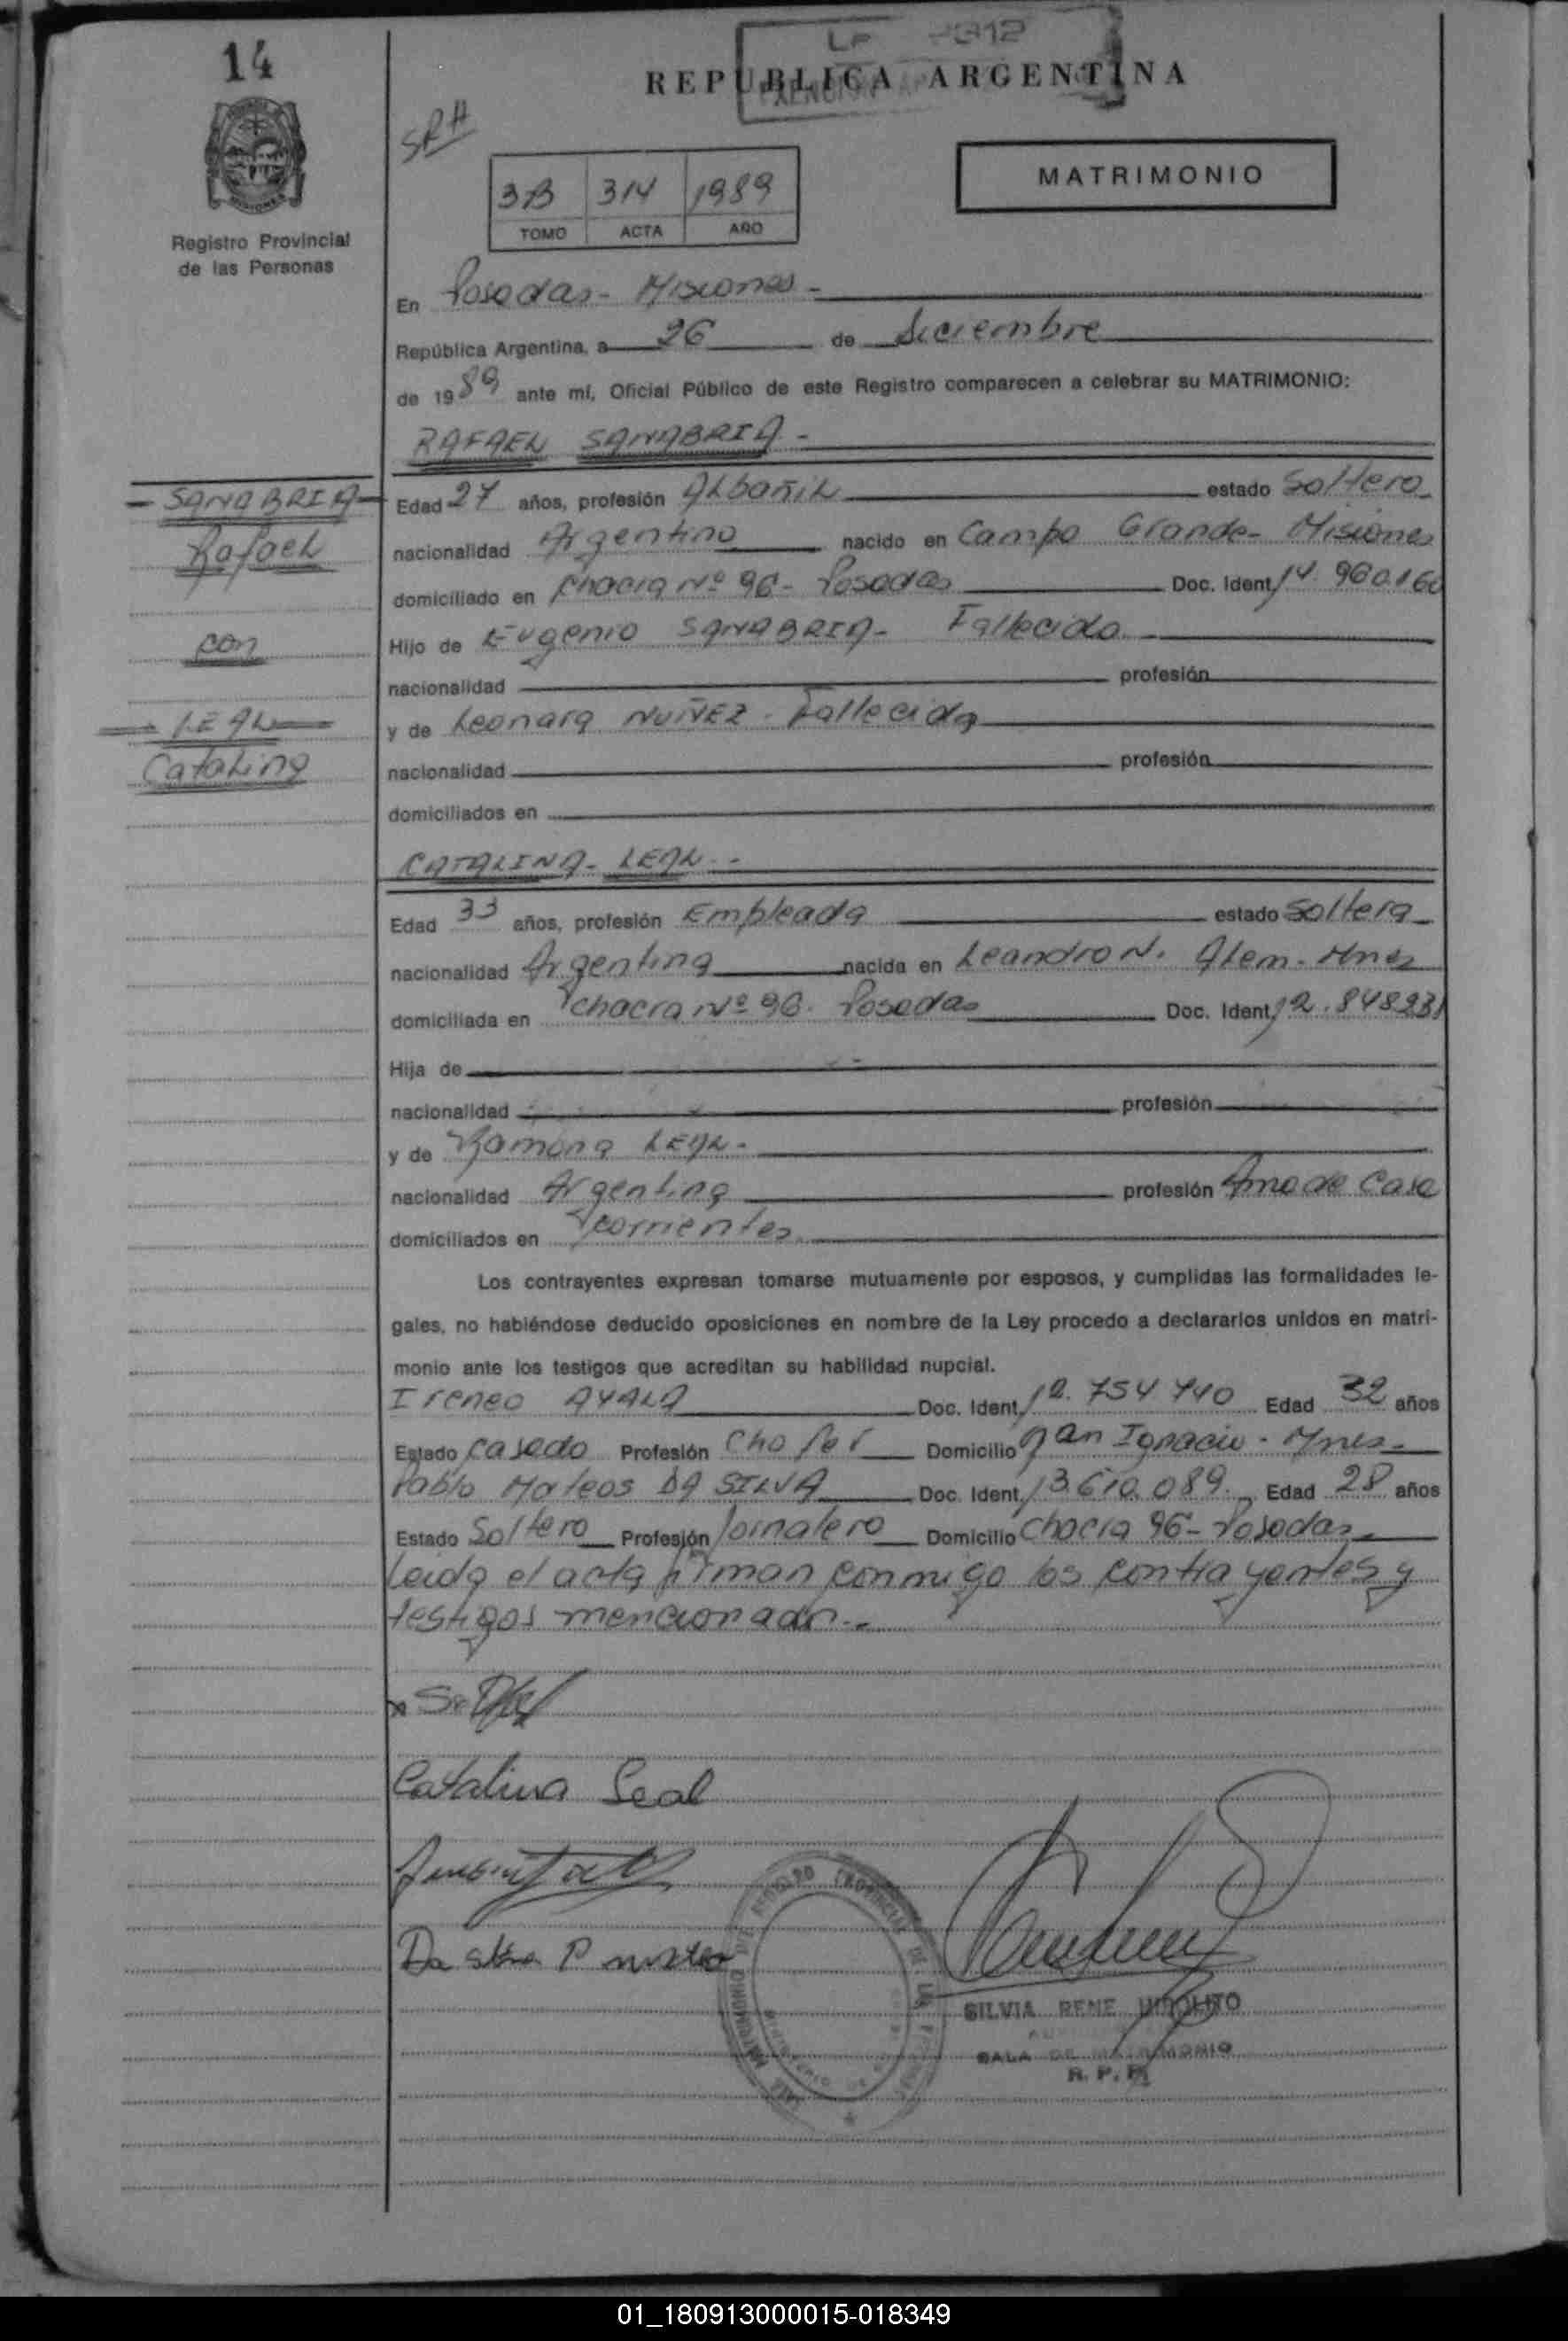 14
LP
REPUBLICA ARGENTINA
SRH
3B 314 1989
TOMO ACTA AÑO
MATRIMONIO
Registro Provincial
de las Personas
En Posadas - Misiones -
República Argentina, a 26 de diciembre
de 1989 ante mí, Oficial Público de este Registro comparecen a celebrar su MATRIMONIO:
RAFAEL SANABRIA -
- SANABRIA -
Rafael
con
LEAL
Catalina
Edad 27 años, profesión Albañil estado Soltero
nacionalidad Argentino nacido en Campo Grande - Misiones
domiciliado en Chacra Nº 96 - Posadas Doc. Ident. 14.960.160
Hijo de Eugenio SANABRIA - Fallecido
nacionalidad profesión
y de Leonara NUÑEZ - Fallecida
nacionalidad profesión
domiciliados en
CATALINA - LEAL -
Edad 33 años, profesión Empleada estado Soltera
nacionalidad Argentina nacida en Leandro N. Alem - Mnes
domiciliada en chacra Nº 96. Posadas Doc. Ident. 12.848231
Hija de
nacionalidad profesión
y de Ramona LEAL -
nacionalidad Argentina profesión Ama de Casa
domiciliados en corrientes
Los contrayentes expresan tomarse mutuamente por esposos, y cumplidas las formalidades le-
gales, no habiéndose deducido oposiciones en nombre de la Ley procedo a declararlos unidos en matri-
monio ante los testigos que acreditan su habilidad nupcial.
Ireneo AYALA Doc. Ident. 12.754 740 Edad 32 años
Estado casado Profesión Chofer Domicilio San Ignacio - Mnes -
Pablo Mateos DA SILVA Doc. Ident. 13.610.089. Edad 28 años
Estado Soltero Profesión Jornalero Domicilio Chacra 96 - Posadas -
Leida el acta firman conmigo los contrayentes y
testigos mencionados.-
Catalina Leal
Da Silva P
SILVIA RENE HIPOLITO
SALA DE MATRIMONIO
R. P. P.
01_180913000015-018349